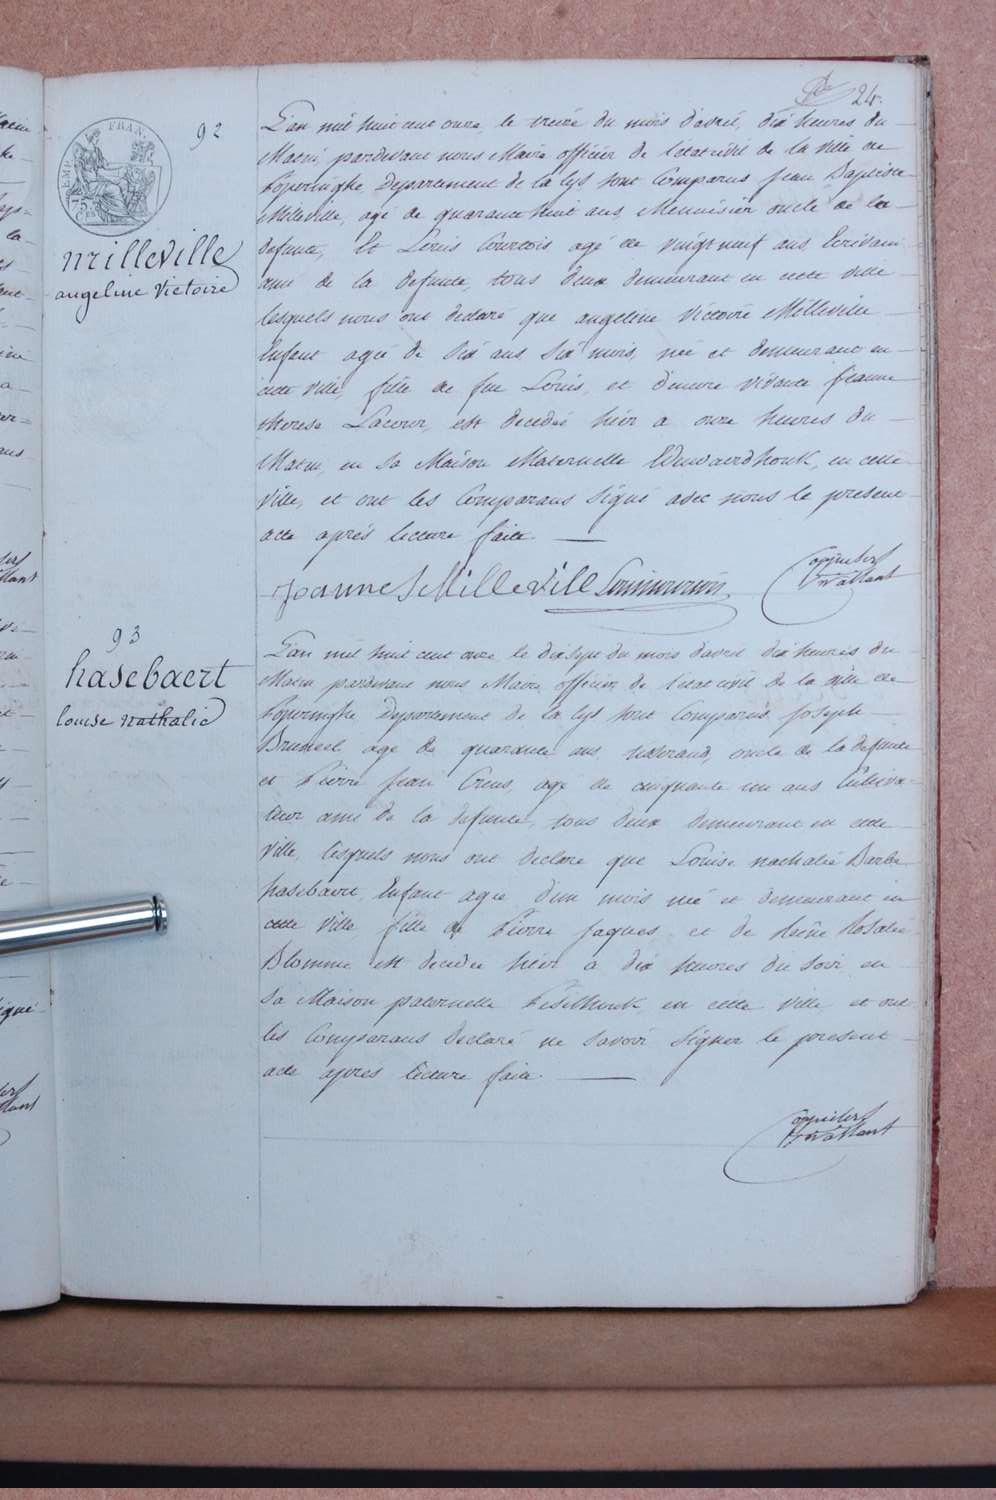 24.
92
milleville
angeline Victoire
L'an mil huit cent onze, le treize du mois d'avril, dix heures du
Matin, pardevant nous Maire officier de l'etat civil de la ville de
Poperinghe Departement de la Lys sont Comparus jean Baptiste
Milleville, agé de quarante huit ans, Menuisier oncle de la
defunte, Et Louis Courtois agé de vingt neuf ans Ecrivain
ami de la defunte, tous deux demeurant en cette ville
lesquels nous ont declaré que angeline Victoire Milleville
Enfant agée de Six ans Six mois, née et demeurant en
cette ville, fille de feu Louis, et d'encore vivante jeanne
therese Lacour, est decedée hier a onze heures du
Matin, en Sa Maison Maternelle en cette
Ville, et ont les Comparans Signé avec nous le present
acte aprés lecture faite
joannes Milleville
93
hasebaert
louise nathalie
L'an mil huit cent onze, le dix sept du mois d'avril dix heures du
Matin pardevant nous Maire officier de l'etat civil de la ville de
Poperinghe Departement de la Lys sont Comparus, joseph
Bruneel agé de quarante ans tisserand, oncle de la defunte
et Pierre jean Creus, agé de cinquante un ans Cultiva-
teur ami de la defunte, tous deux demeurant en cette
ville, lesquels nous ont declaré que Louise nathalie Barbe
hasebaert, Enfant agée d'un mois née et demeurant en
cette Ville, fille de Pierre jaques, et de Reine Rosalie
Blomme est decedée hier a dix heures du Soir en
Sa Maison paternelle en cette ville et ont
les Comparans declaré ne Savoir Signer le present
acte apres lecture faite.